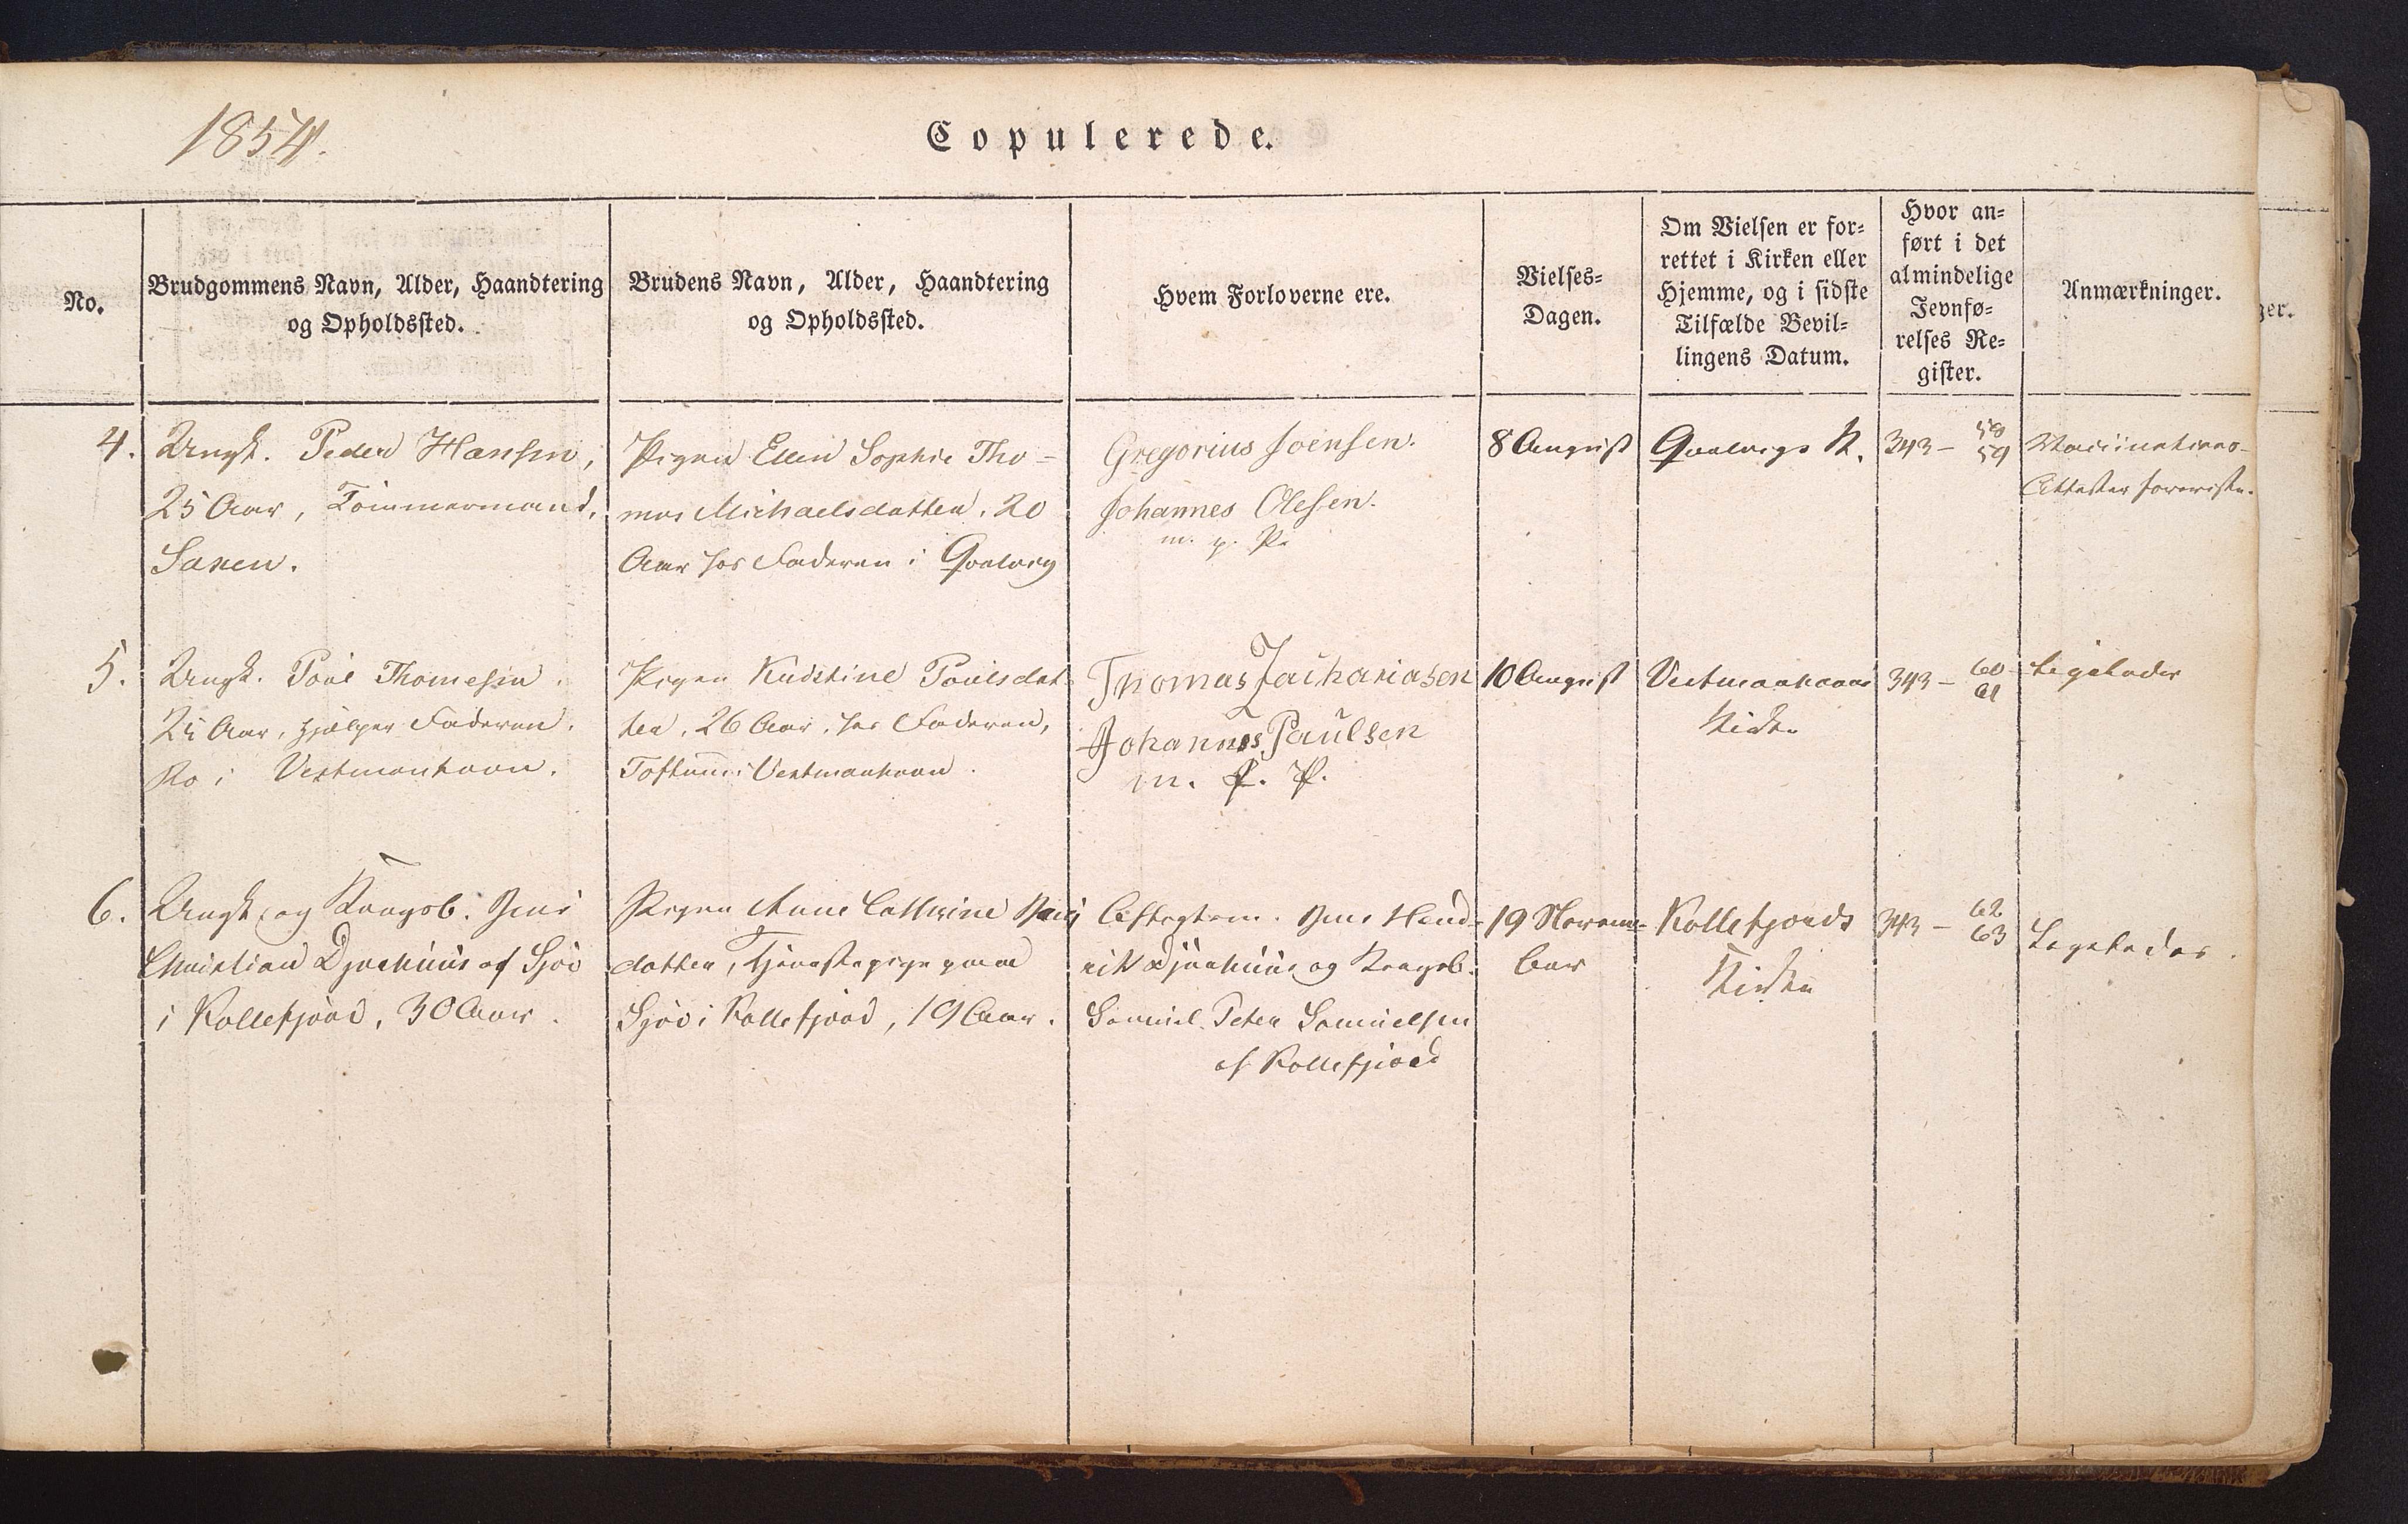 1854.
Copulerede.
No.
Brudgommens Navn, Alder, Haandtering
og Opholdssted.
Brudens Navn, Alder, Haandtering
og Opholdssted.
Hvem Forloverne ere.
Vielses-
Dagen.
Om Vielsen er for-
rettet i Kirken eller
Hjemme, og i sidste
Tilfælde Bevil-
lingens Datum.
Hvor an-
ført i det
almindelige
Jevnfø-
relses Re-
gister.
Anmærkninger.
ger.
4.
Ungk. Peder Hansen,
25 Aar, Tømmermand,
Saxen.
Pigen Ellen Sophie Tho-
mas Michaelsdatter, 20
Aar hos Faderen i Qvalvig
Gregorius Joensen.
Johannes Olesen.
m. p. P.
8 August
Qvalvigs K.
343 - 58
59
Vaccinations-
Attester foreviste.
5.
Ungk. Poul Thomesen
25 Aar, hjælper Faderen.
Ro i Vestmanhavn.
Pigen Kirstine Poulsdat
ter, 26 Aar, hos Faderen,
Toftum i Vestmanhavn.
Thomas Zachariasen
Johannes Paulsen
m. p. P.
10 August
Vestmanhavns
Kirke
343 - 60
61
Ligeledes
6.
Ungk. og Kongsb. Jens
Christian Djonhuus af Sjov
i Kollefjord, 30 Aar.
Pigen Anne Cathrine
datter, Tjenestepige paa
Sjov i Kollefjord, 19 Aar.
Aftægtsm. Jens Hend-
rik Djonhuus og Kongsb.
Samuel Peter Samuelsen
af Kollefjord
19 Novem-
ber
Kollefjords
Kirke
343 - 62
63
Ligeledes.